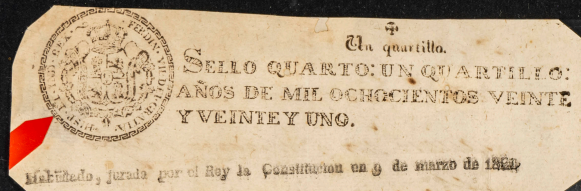 Un quartillo.
SELLO QUARTO: UN QUARTILLO:
AÑOS DE MIL OCHOCIENTOS VEINTE
Y VEINTE Y UNO.
Habilitado, jurada por el Rey la Constitucion en 9 de marzo de